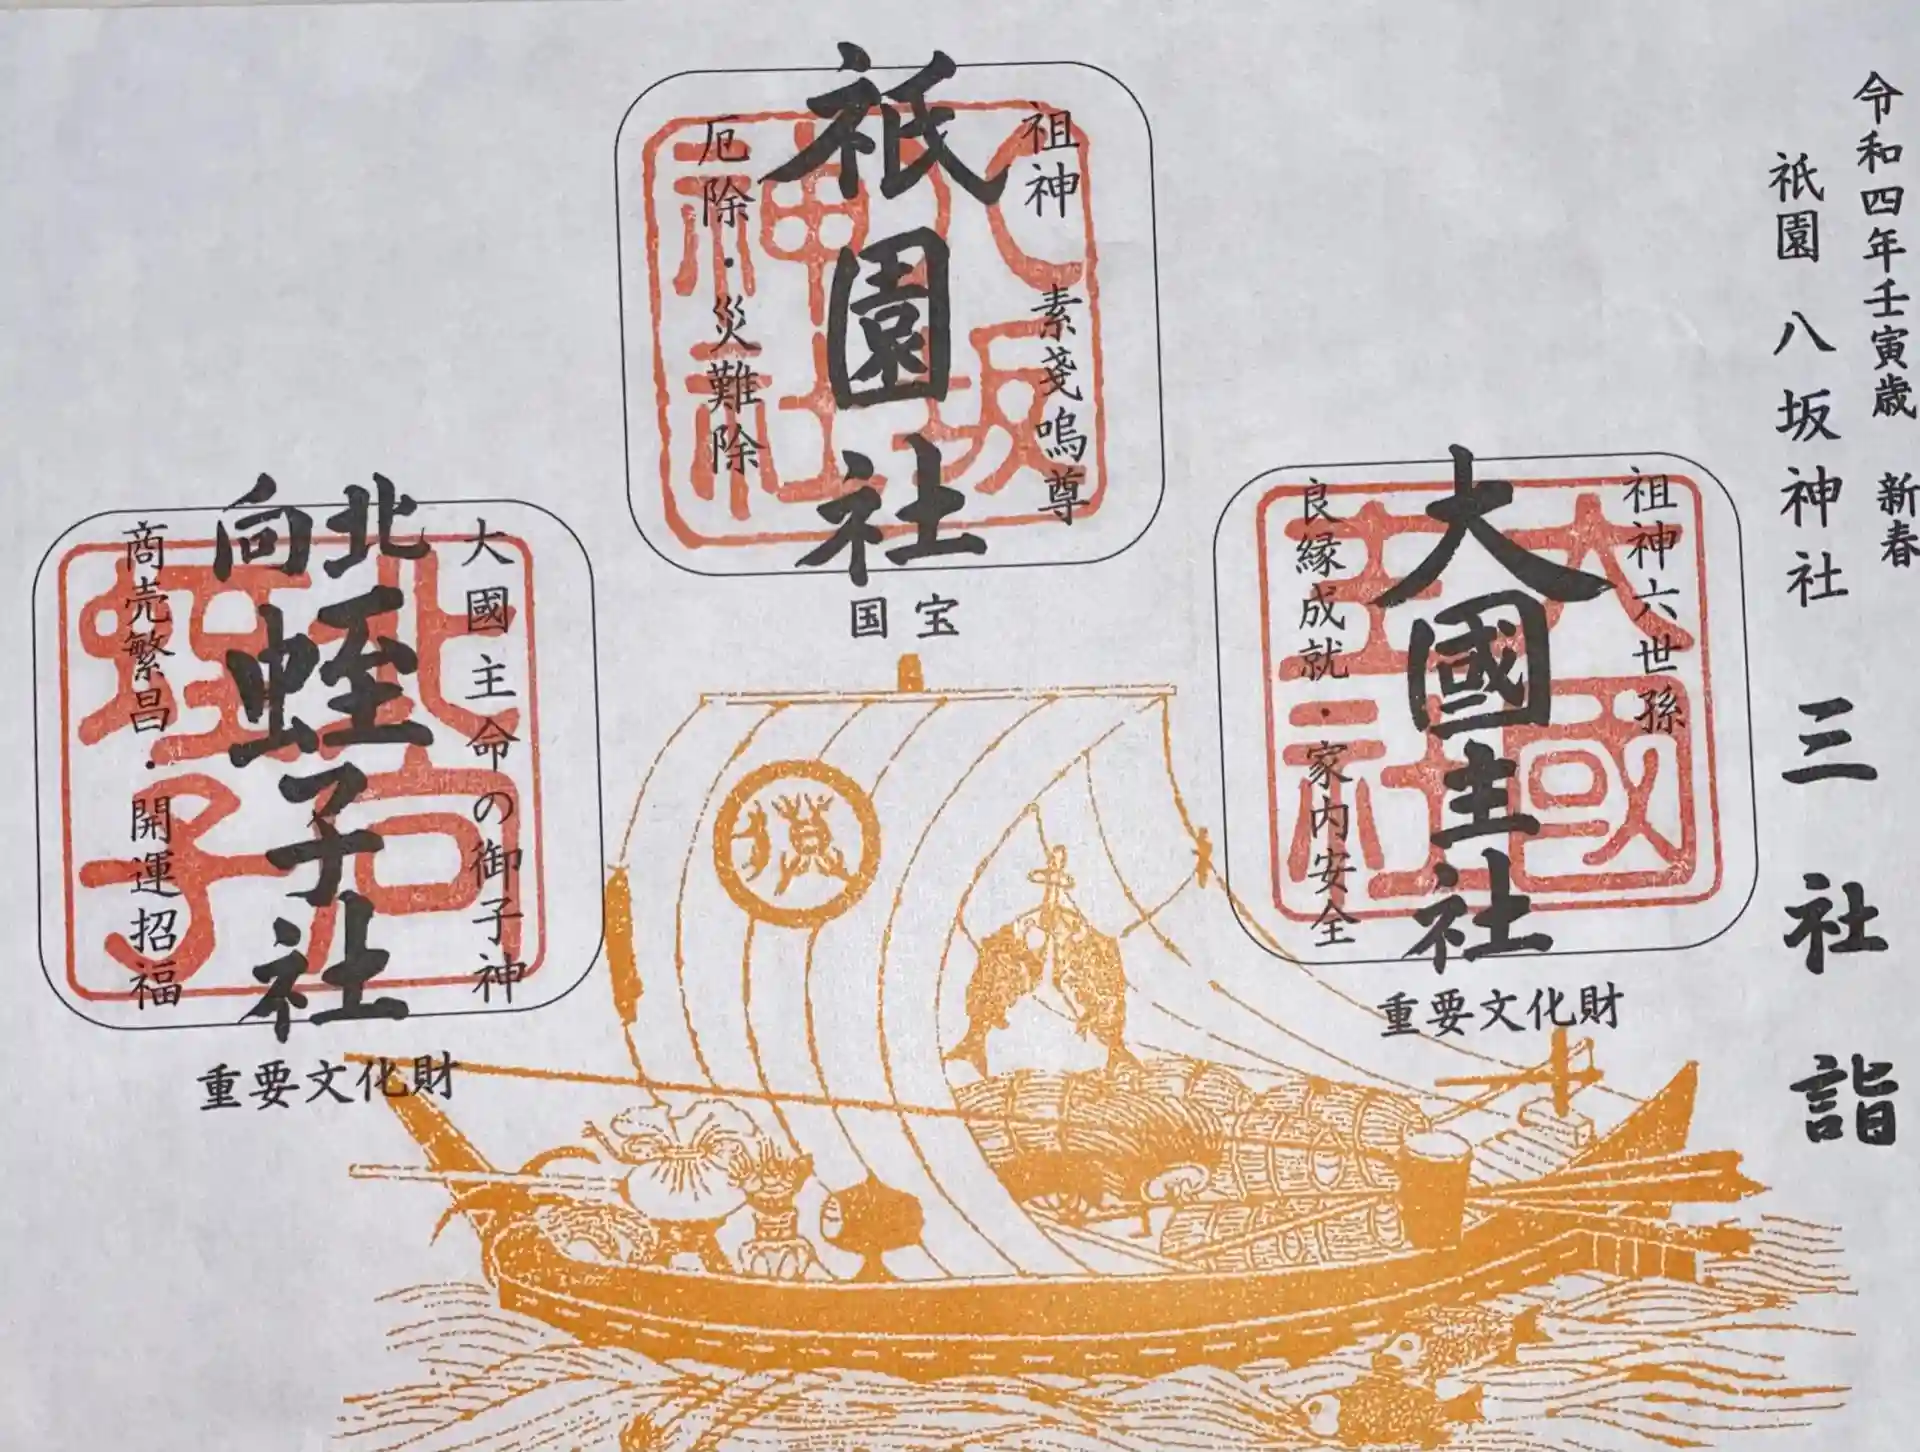 令和四年壬寅歳 新春
祇園 八坂神社 三社詣
祖神六世孫
大國主社
良縁成就・家内安全
大國主社
重要文化財
祖神 素戔嗚尊
祇園社
厄除・災難除
八坂神社
国宝
大國主命の御子神
北向蛭子社
商売繁昌・開運招福
北向蛭子
重要文化財